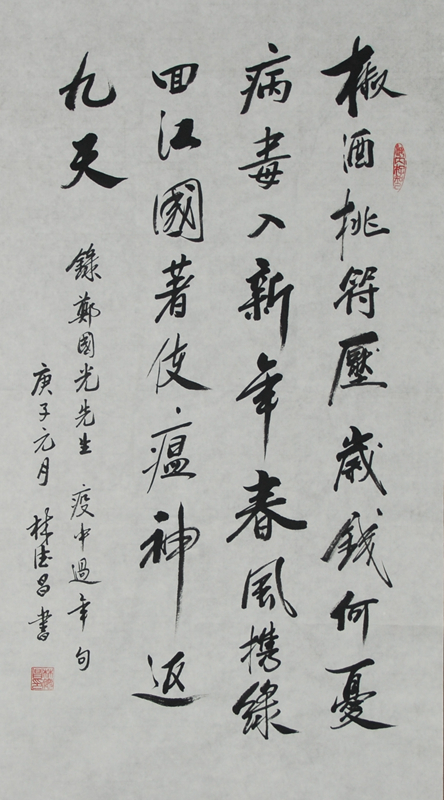 椒酒桃符壓歲錢何憂
病毒入新年春風携綠
回江國著使瘟神返
九天
錄鄭國光先生 疫中過年句
庚子元月 林德昌書